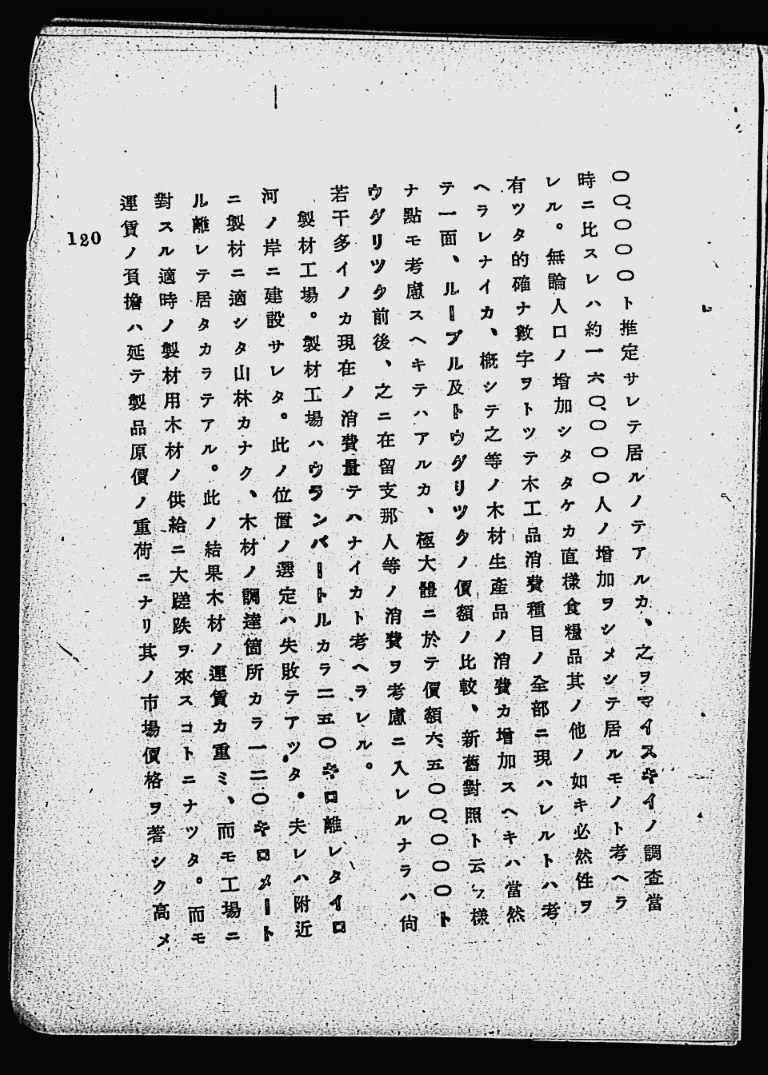 〇〇、〇〇〇ト推定サレテ居ルノテアルカ、之ヲマイスキイノ調査當
時ニ比スレハ約一六〇、〇〇〇人ノ增加ヲシメシテ居ルモノト考ヘラ
レル。無論人口ノ增加シタタケカ直樣食糧品其ノ他ノ如キ必然性ヲ
有ツタ的確ナ數字ヲトツテ木工品消費種目ノ全部ニ現ハレルトハ考
ヘラレナイカ、槪シテ之等ノ木材生產品ノ消費カ增加スヘキハ當然
テ一面、ルーブル及トウグリツクノ價額ノ比較、新舊對照ト云フ樣
ナ點モ考慮スヘキテハアルカ、極大體ニ於テ價額六、五〇〇、〇〇〇ト
ウグリツク前後、之ニ在留支那人等ノ消費ヲ考慮ニ入レルナラハ尙
若干多イノカ現在ノ消費量テハナイカト考ヘラレル。
製材工場。製材工場ハウランバートルカラ二五〇キロ離レタイロ
河ノ岸ニ建設サレタ。此ノ位置ノ選定ハ失敗テアツタ。夫レハ附近
ニ製材ニ適シタ山林カナク、木材ノ調達箇所カラ一二〇キロメート
ル離レテ居タカラテアル。此ノ結果木材ノ運賃カ重ミ、而モ工場ニ
對スル適時ノ製材用木材ノ供給ニ大蹉跌ヲ來スコトニナツタ。而モ
運賃ノ負擔ハ延テ製品原價ノ重荷ニナリ其ノ市場價格ヲ著シク高メ
120